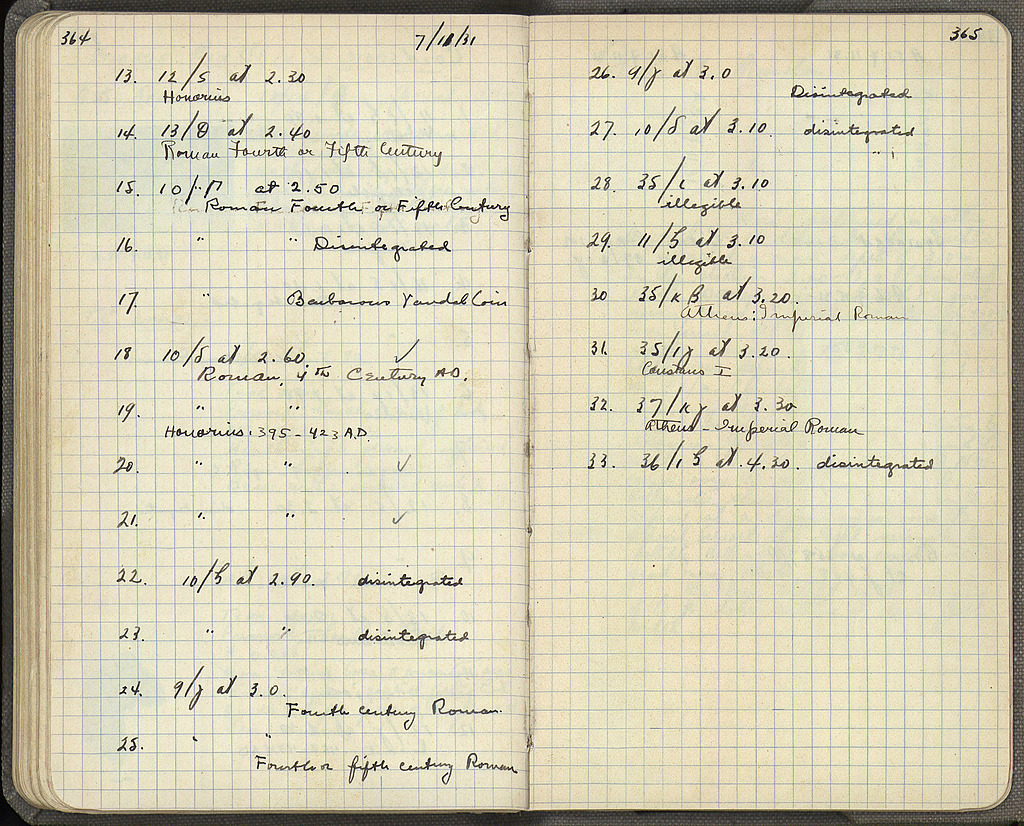 364
7/11/31
13. 12/S at 2.30
Honorius
14. 13/Θ at 2.40
Roman Fourth or Fifth Century
15. 10/Π at 2.50
Roman Fourth or Fifth Century
16. " " Disintegrated
17. " Barbarous Vandal Coin
18 10/δ at 2.60. ✓
Roman, 4th Century A.D.
19. " "
Honorius: 395-423 A.D.
20. " " ✓
21. " " ✓
22. 10/ at 2.90. disintegrated
23. " " disintegrated
24. 9/ at 3.0.
Fourth century Roman.
25. " "
Fourth or fifth century Roman
365
26. 9/ at 3.0
Disintegrated
27. 10/δ at 3.10. disintegrated
28. 35/ι at 3.10
illegible
29. 11/ at 3.10
illegible
30 35/κΒ at 3.20.
Athens: Imperial Roman
31. 35/ at 3.20.
Constans I
32. 37/ at 3.30
Athens - Imperial Roman
33. 36/ at 4.30. disintegrated